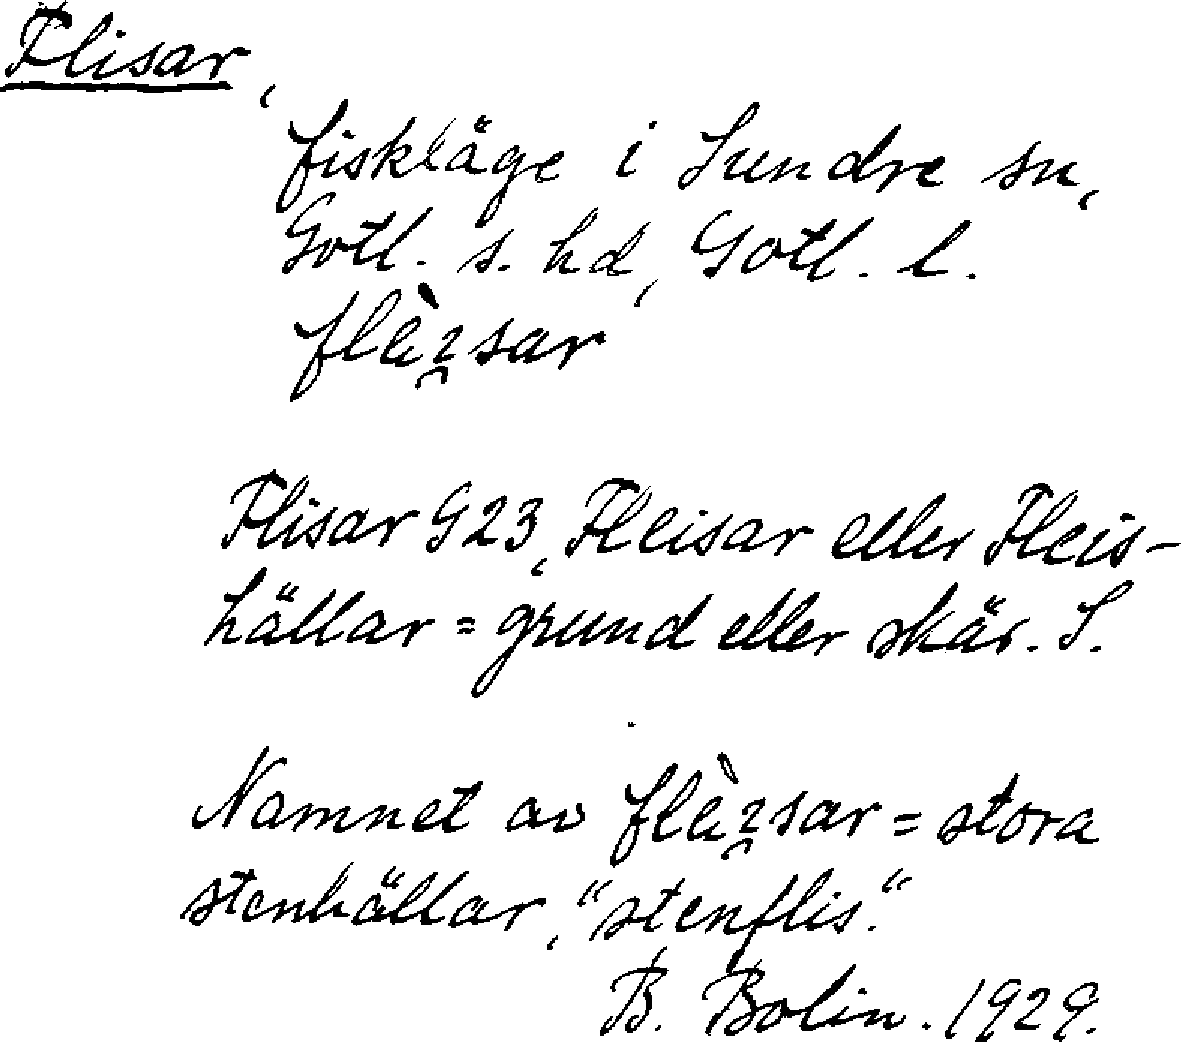 Flisar,
fiskläge i Sundre sn,
Gotl. s. hd, Gotl. l.
Flisar G23, Fleisar eller Fleis-
hällar = grund eller skär. S.
Namnet av = stora
stenhällar, "stenflis".
B. Bolin. 1929.